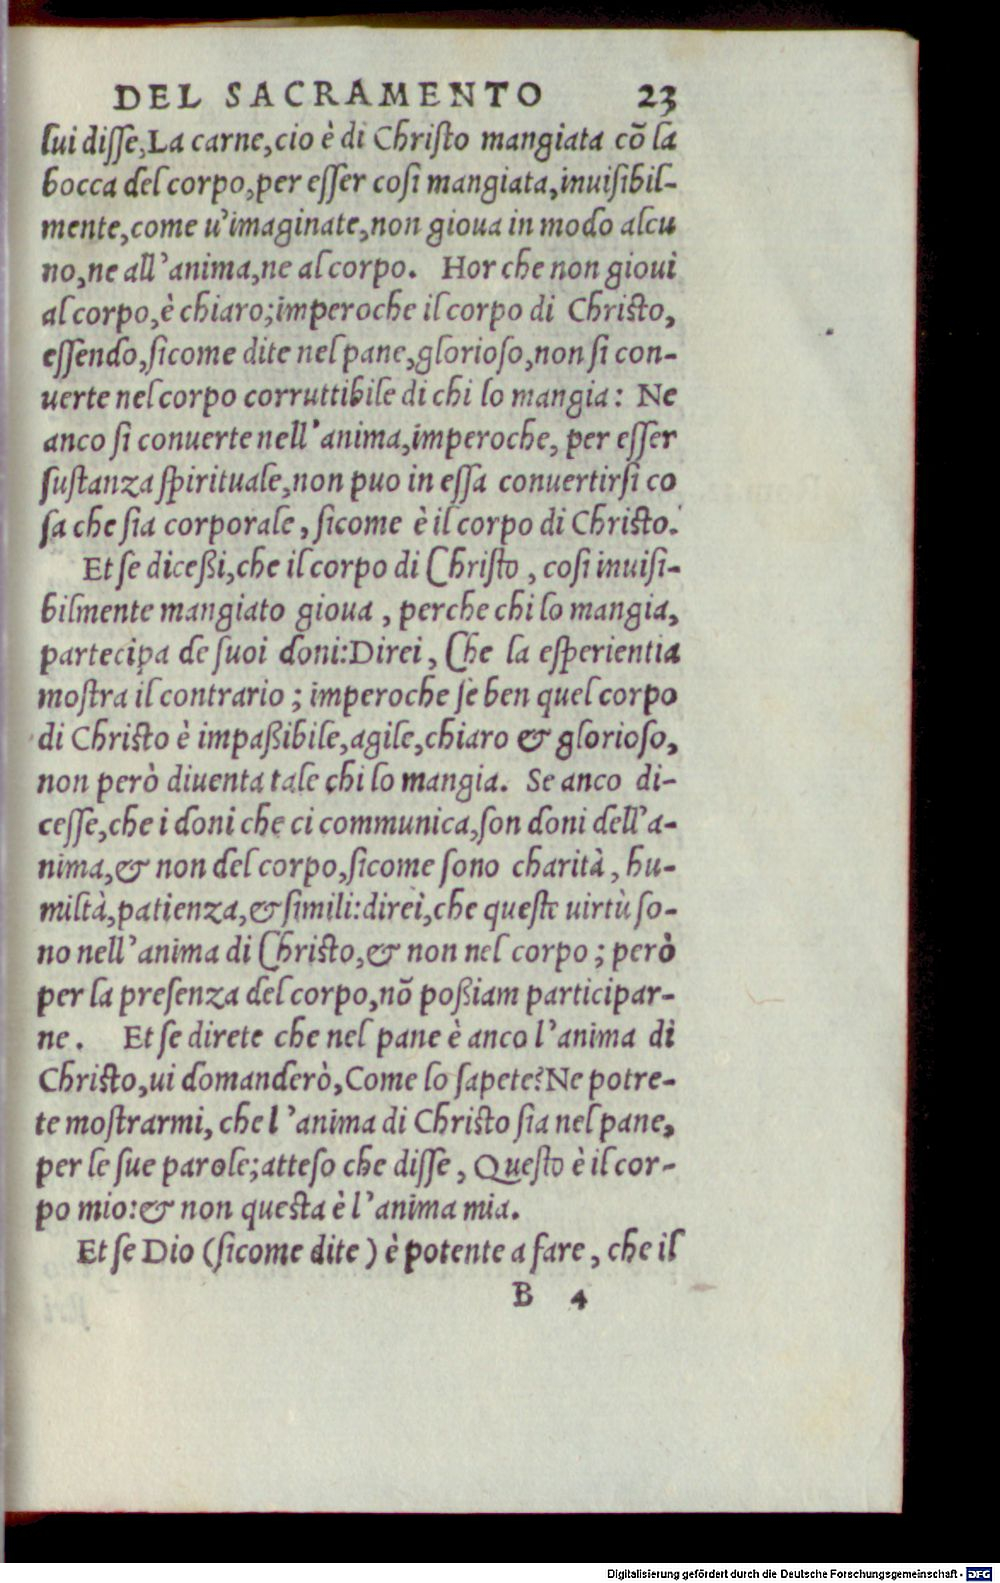 DEL SACRAMENTO 23
lui disse, La carne, cio è di Christo mangiata cõ la
bocca del corpo, per esser cosi mangiata, inuisibil-
mente, come u'imaginate, non gioua in modo alcu
no, ne all'anima, ne al corpo. Hor che non gioui
al corpo, è chiaro; imperoche il corpo di Christo,
essendo, sicome dite nel pane, glorioso, non si con-
uerte nel corpo corruttibile di chi lo mangia: Ne
anco si conuerte nell'anima, imperoche, per esser
sustanza spirituale, non puo in essa conuertirsi co
sa che sia corporale, sicome è il corpo di Christo.
Et se diceßi, che il corpo di Christo, cosi inuisi-
bilmente mangiato gioua, perche chi lo mangia,
partecipa de suoi doni: Direi, Che la esperientia
mostra il contrario; imperoche se ben quel corpo
di Christo è impaßibile, agile, chiaro & glorioso,
non però diuenta tale chi lo mangia. Se anco di-
cesse, che i doni che ci communica, son doni dell'a-
nima, & non del corpo, sicome sono charità, hu-
miltà, patienza, & simili: direi, che queste uirtù so-
no nell'anima di Christo, & non nel corpo; però
per la presenza del corpo, nõ poßiam participar-
ne. Et se direte che nel pane è anco l'anima di
Christo, ui domanderò, Come lo sapete? Ne potre-
te mostrarmi, che l'anima di Christo sia nel pane,
per le sue parole; atteso che disse, Questo è il cor-
po mio: & non questa è l'anima mia.
Et se Dio (sicome dite) è potente a fare, che il
B 4
Digitalisierung gefördert durch die Deutsche Forschungsgemeinschaft - DFG